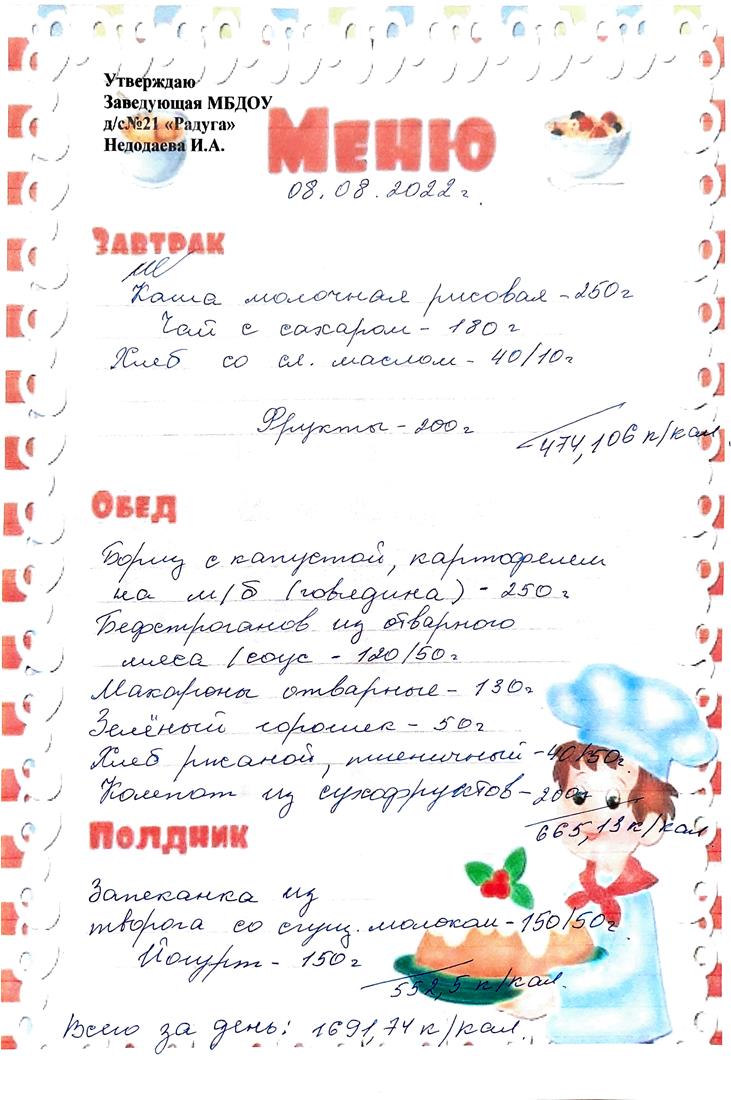 Утверждаю
Заведующая МБДОУ
д/с№21 «Радуга»
Недодаева И.А.
Меню
08.08.2022г.
Завтрак
Каша молочная рисовая - 250г
Чай с сахаром - 180г
Хлеб со сл. маслом - 40/10г
Фрукты - 200г
474,106 к/кал.
Обед
Борщ с капустой, картофелем
на м/б (говядина) - 250г
Бефстроганов из отварного
мяса /соус - 120/50г
Макароны отварные - 130г
Зелёный горошек - 50г
Хлеб ржаной, пшеничный - 40/50г.
Компот из сухофруктов - 200г
665,13 к/кал.
Полдник
Запеканка из
творога со сгущ. молоком - 150/50г.
Йогурт - 150г
552,5 к/кал.
Всего за день: 1691,74 к/кал.